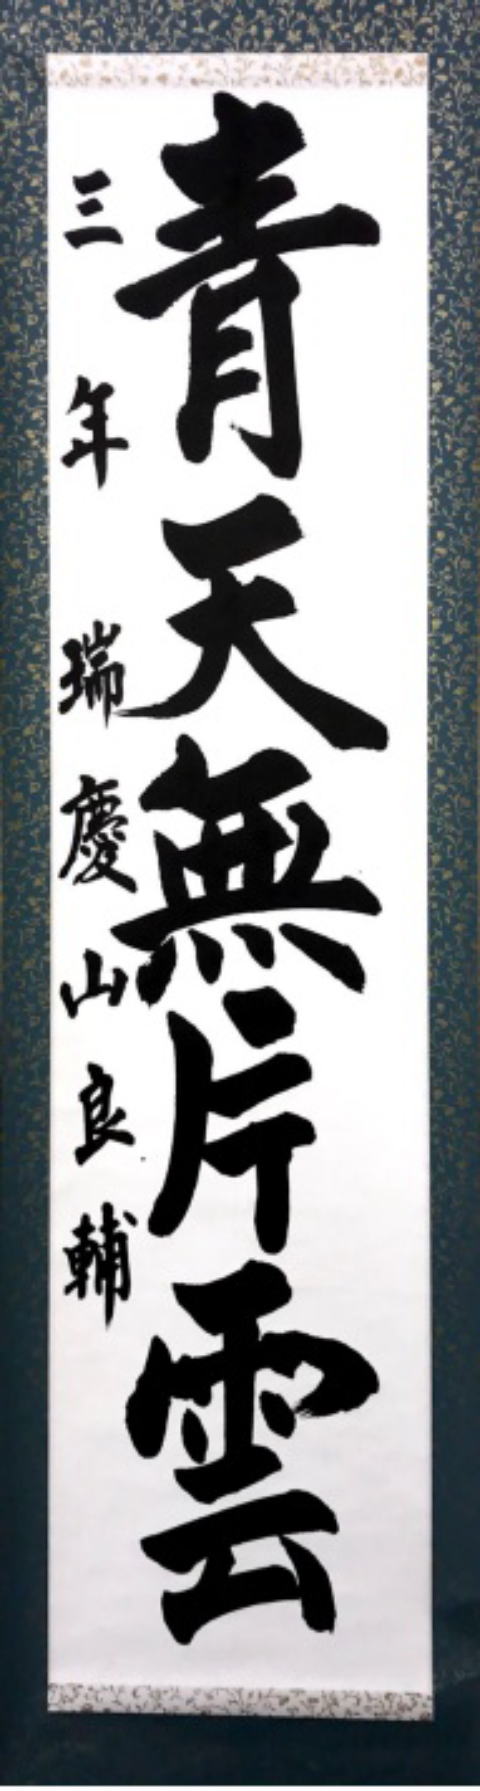 青天無片雲
三年 瑞慶山良輔